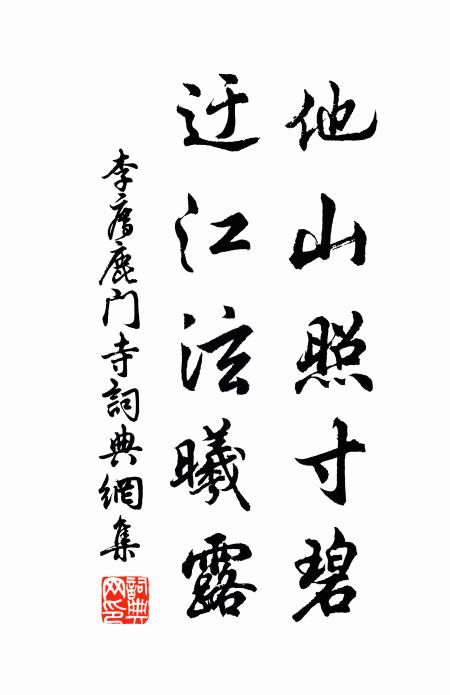 他山照寸碧
迂江泫曦露
李廌鹿门寺詞典網集
詞典网印